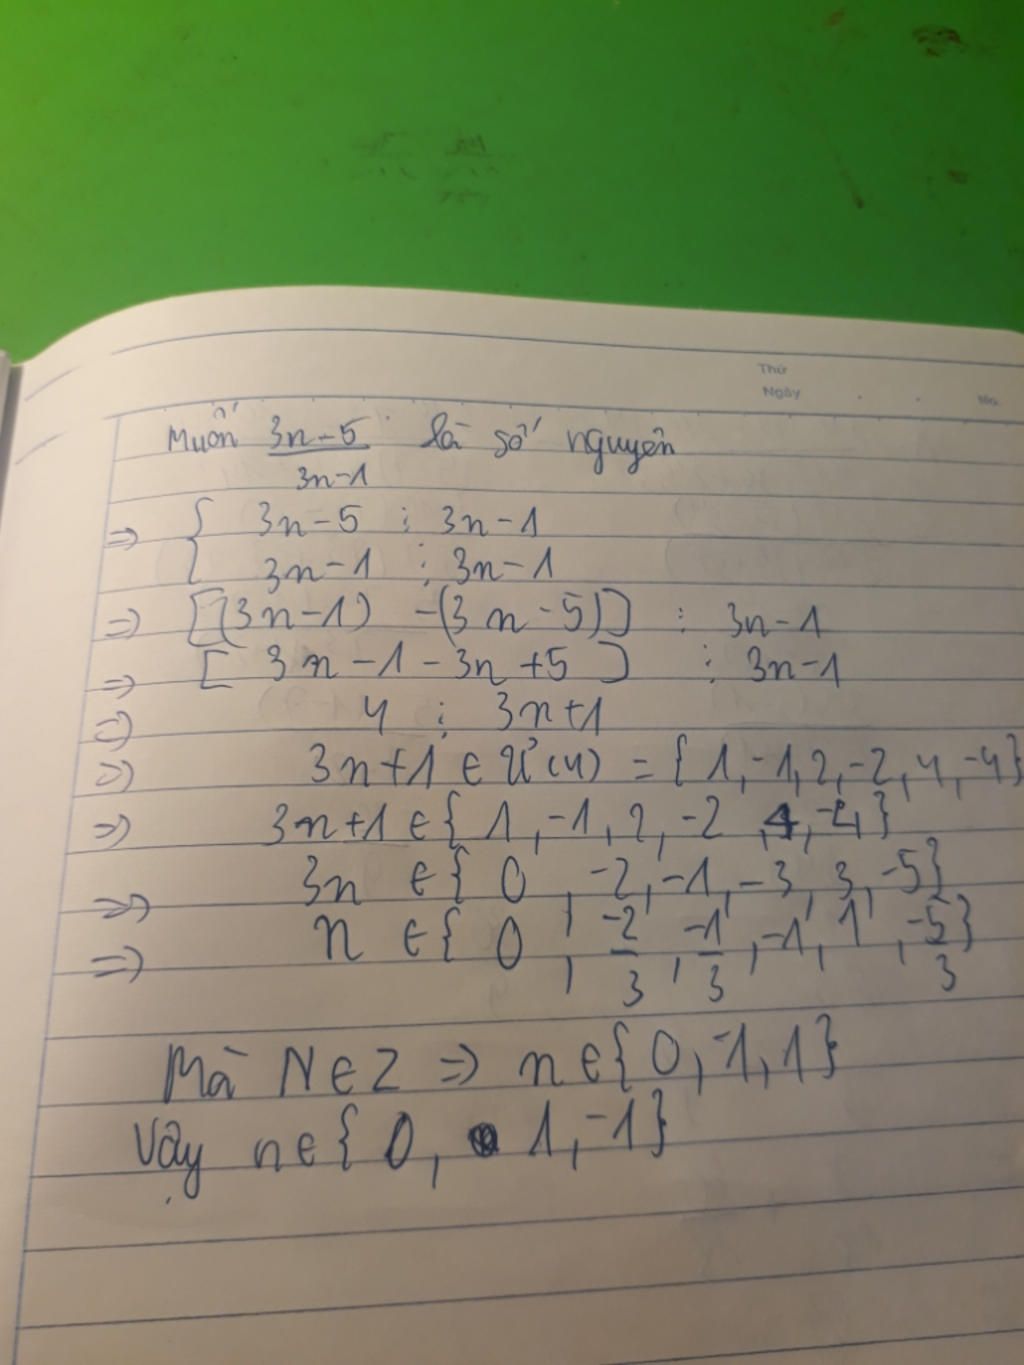 Thứ
Ngày
No.
Muốn \frac{3n-5}{3n-1} là số nguyên
=> { 3n-5 ⋮ 3n-1
3n-1 ⋮ 3n-1
=> [(3n-1) -(3n-5)] ⋮ 3n-1
=> [ 3n-1-3n+5 ] ⋮ 3n-1
=> 4 ⋮ 3n+1
=> 3n+1 ∈ Ư(4) = { 1,-1,2,-2,4,-4}
=> 3n+1 ∈ { 1,-1,2,-2,4,-4}
=> 3n ∈ { 0, -2,-1,-3,3,-5}
=> n ∈ { 0, \frac{-2}{3}, \frac{-1}{3}, -1, 1, \frac{-5}{3}}
Mà N ∈ Z => n ∈ { 0,-1,1}
Vậy n ∈ { 0, 1,-1}